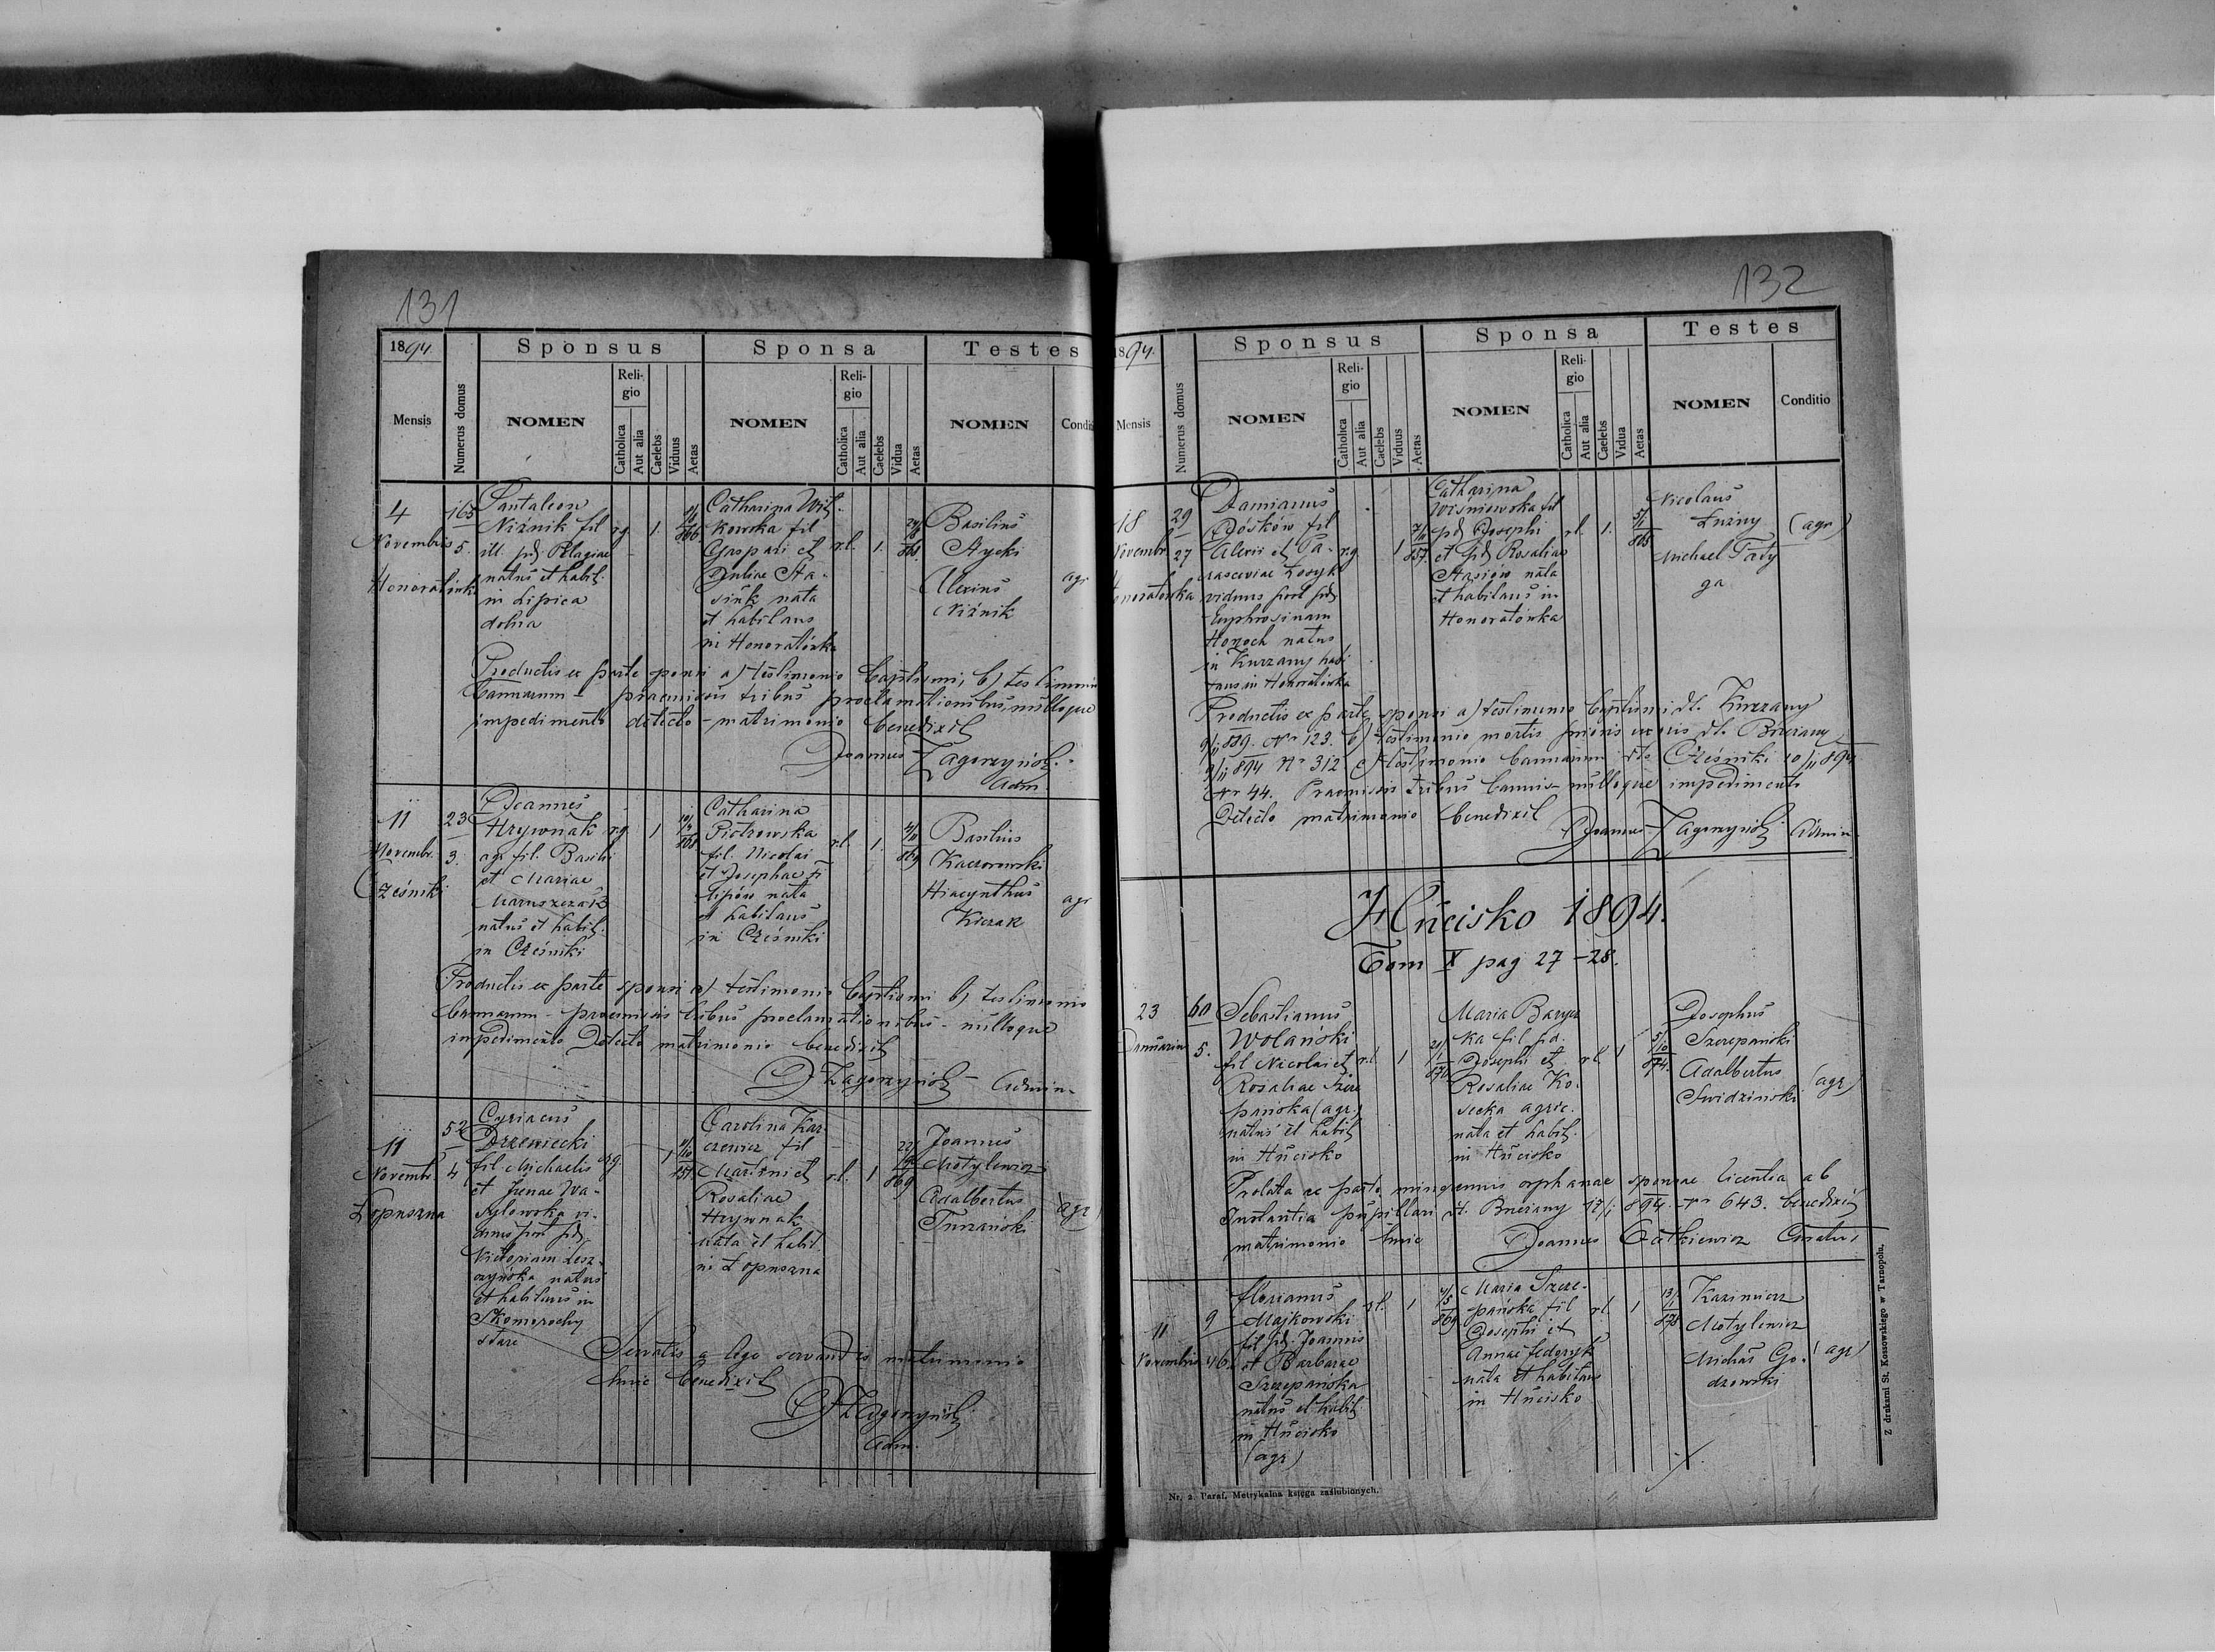 131
1894.
Sponsus
Sponsa
Testes
Mensis
Numerus domus
NOMEN
Religio
Catholica
Aut alia
Caelebs
Viduus
Aetas
NOMEN
Religio
Catholica
Aut alia
Caelebs
Vidua
Aetas
NOMEN
Condi
4
Novembris
Honoratówka
165
5.
Pantaleon
Niźnik fil
ill. pd. Pelagiae
natus et habit.
in Lipica
dolna
rg
1.
Catharina Wit-
kowska fil
Gaspari et
Juliae Sta-
siuk nata
et habitans
in Honoratówka
rl.
1.
Basilius
Hycki
Alexius
Niźnik
agr
Productis ex parte sponsi a) testimonio baptismi, b) testimonio
bannorum - praemissis tribus proclamationibus, nulloque
impedimento detecto - matrimonio benedixit
Joannes Zagorzyński
Adm.
11
Novembr.
Cześniki
23
3.
Joannes
Hrywnak
agr. fil. Basilii
et Mariae
Maruszczak
natus et habit.
in Cześniki
rg
1
Catharina
Piotrowska
fil. Nicolai
et Josephae Fi
lipów nata
et habitans
in Cześniki
rl.
1.
Basilius
Kaczorowski
Hiacynthus
Kiczak
agr
Productis ex parte sponsi a) testimonio baptismi b) testimonio
bannorum - praemissis tribus proclamationibus - nulloque
impedimento detecto matrimonio benedixit
J Zagorzyński - Admin.
11
Novembr.
Łopuszna
52
4
Cyriacus
Drzewiecki
fil. Michaelis
et Irenae Wa-
sylowska vi-
duus post pd.
Victoriam Lesz-
czyńska natus
et habitans in
Skomorochy
stare
rg.
1
Carolina Kar-
czewicz fil
Martini et
Rosaliae
Hrywnak
nata et habit.
in Łopuszna
rl.
1
Joannes
Motylewicz
Adalbertus
Turzański
agr
Servatis a lege servandis matrimonio
huic benedixit
J Zagorzyński
Adm.
132
1894.
Sponsus
Sponsa
Testes
Mensis
Numerus domus
NOMEN
Religio
Catholica
Aut alia
Caelebs
Viduus
Aetas
NOMEN
Religio
Catholica
Aut alia
Caelebs
Vidua
Aetas
NOMEN
Conditio
18
Novembr.
Honoratówka
29
27
Damianus
Dosków fil
Alexii et Pa-
rasceviae Łosyk
viduus post pd
Euphrosinam
Horoch natus
in Kurzany habi
tans in Honoratówka
rg
1
Catharina
Wiśniowska fil
pd Josephi
et pd Rosaliae
Stasiów nata
et habitans in
Honoratówka
rl.
1.
Nicolaus
Łuzny
Michael Fady
ga
(agr)
Productis ex parte sponsi a) testimonio baptismi dt. Kurzany
9/11 889. Nr 123. b) testimonio mortis prioris uxoris dt. Brzeżany
9/11 894 Nr 312 c) testimonio bannorum dto Cześniki 10/11 894
Nr 44. Praemissis tribus bannis nulloque impedimento
detecto matrimonio benedixit
Joannes Zagorzyński Admin.
Hucisko 1894.
Tom X pag 27-28.
23
Januarius
60
5.
Sebastianus
Wolański
fil Nicolai et
Rosaliae Szcze
pańska (agr.)
natus et habit
in Hucisko
rl.
1
Maria Barys
ka fil pd.
Josephi et
Rosaliae Ko-
secka agric.
nata et habit.
in Hucisko
rl
1
Josephus
Szczepański
Adalbertus
Swidziński
(agr)
Prolata ex parte minorennis orphanae sponsae licentia ab
Instantia pupillari dt. Brzeżany 17/1 894. Nr 643. benedixit
matrimonio huic
Joannes Białkiewicz Curatus
11
Novembris
9
46
Florianus
Majkowski
fil pd. Joannis
et Barbarae
Szczepańska
natus et habit
in Hucisko
(agr)
rl.
1
Maria Szcze-
pańska fil
Josephi et
Annae Fedoryk
nata et habitans
in Hucisko
rl.
1
Kazimierz
Motylewicz
Michaś Go-
dzowski
(agr)
Nr. 2. Paraf. Metrykalna księga zaślubionych.
Z drukarni St. Kossowskiego w Tarnopolu.